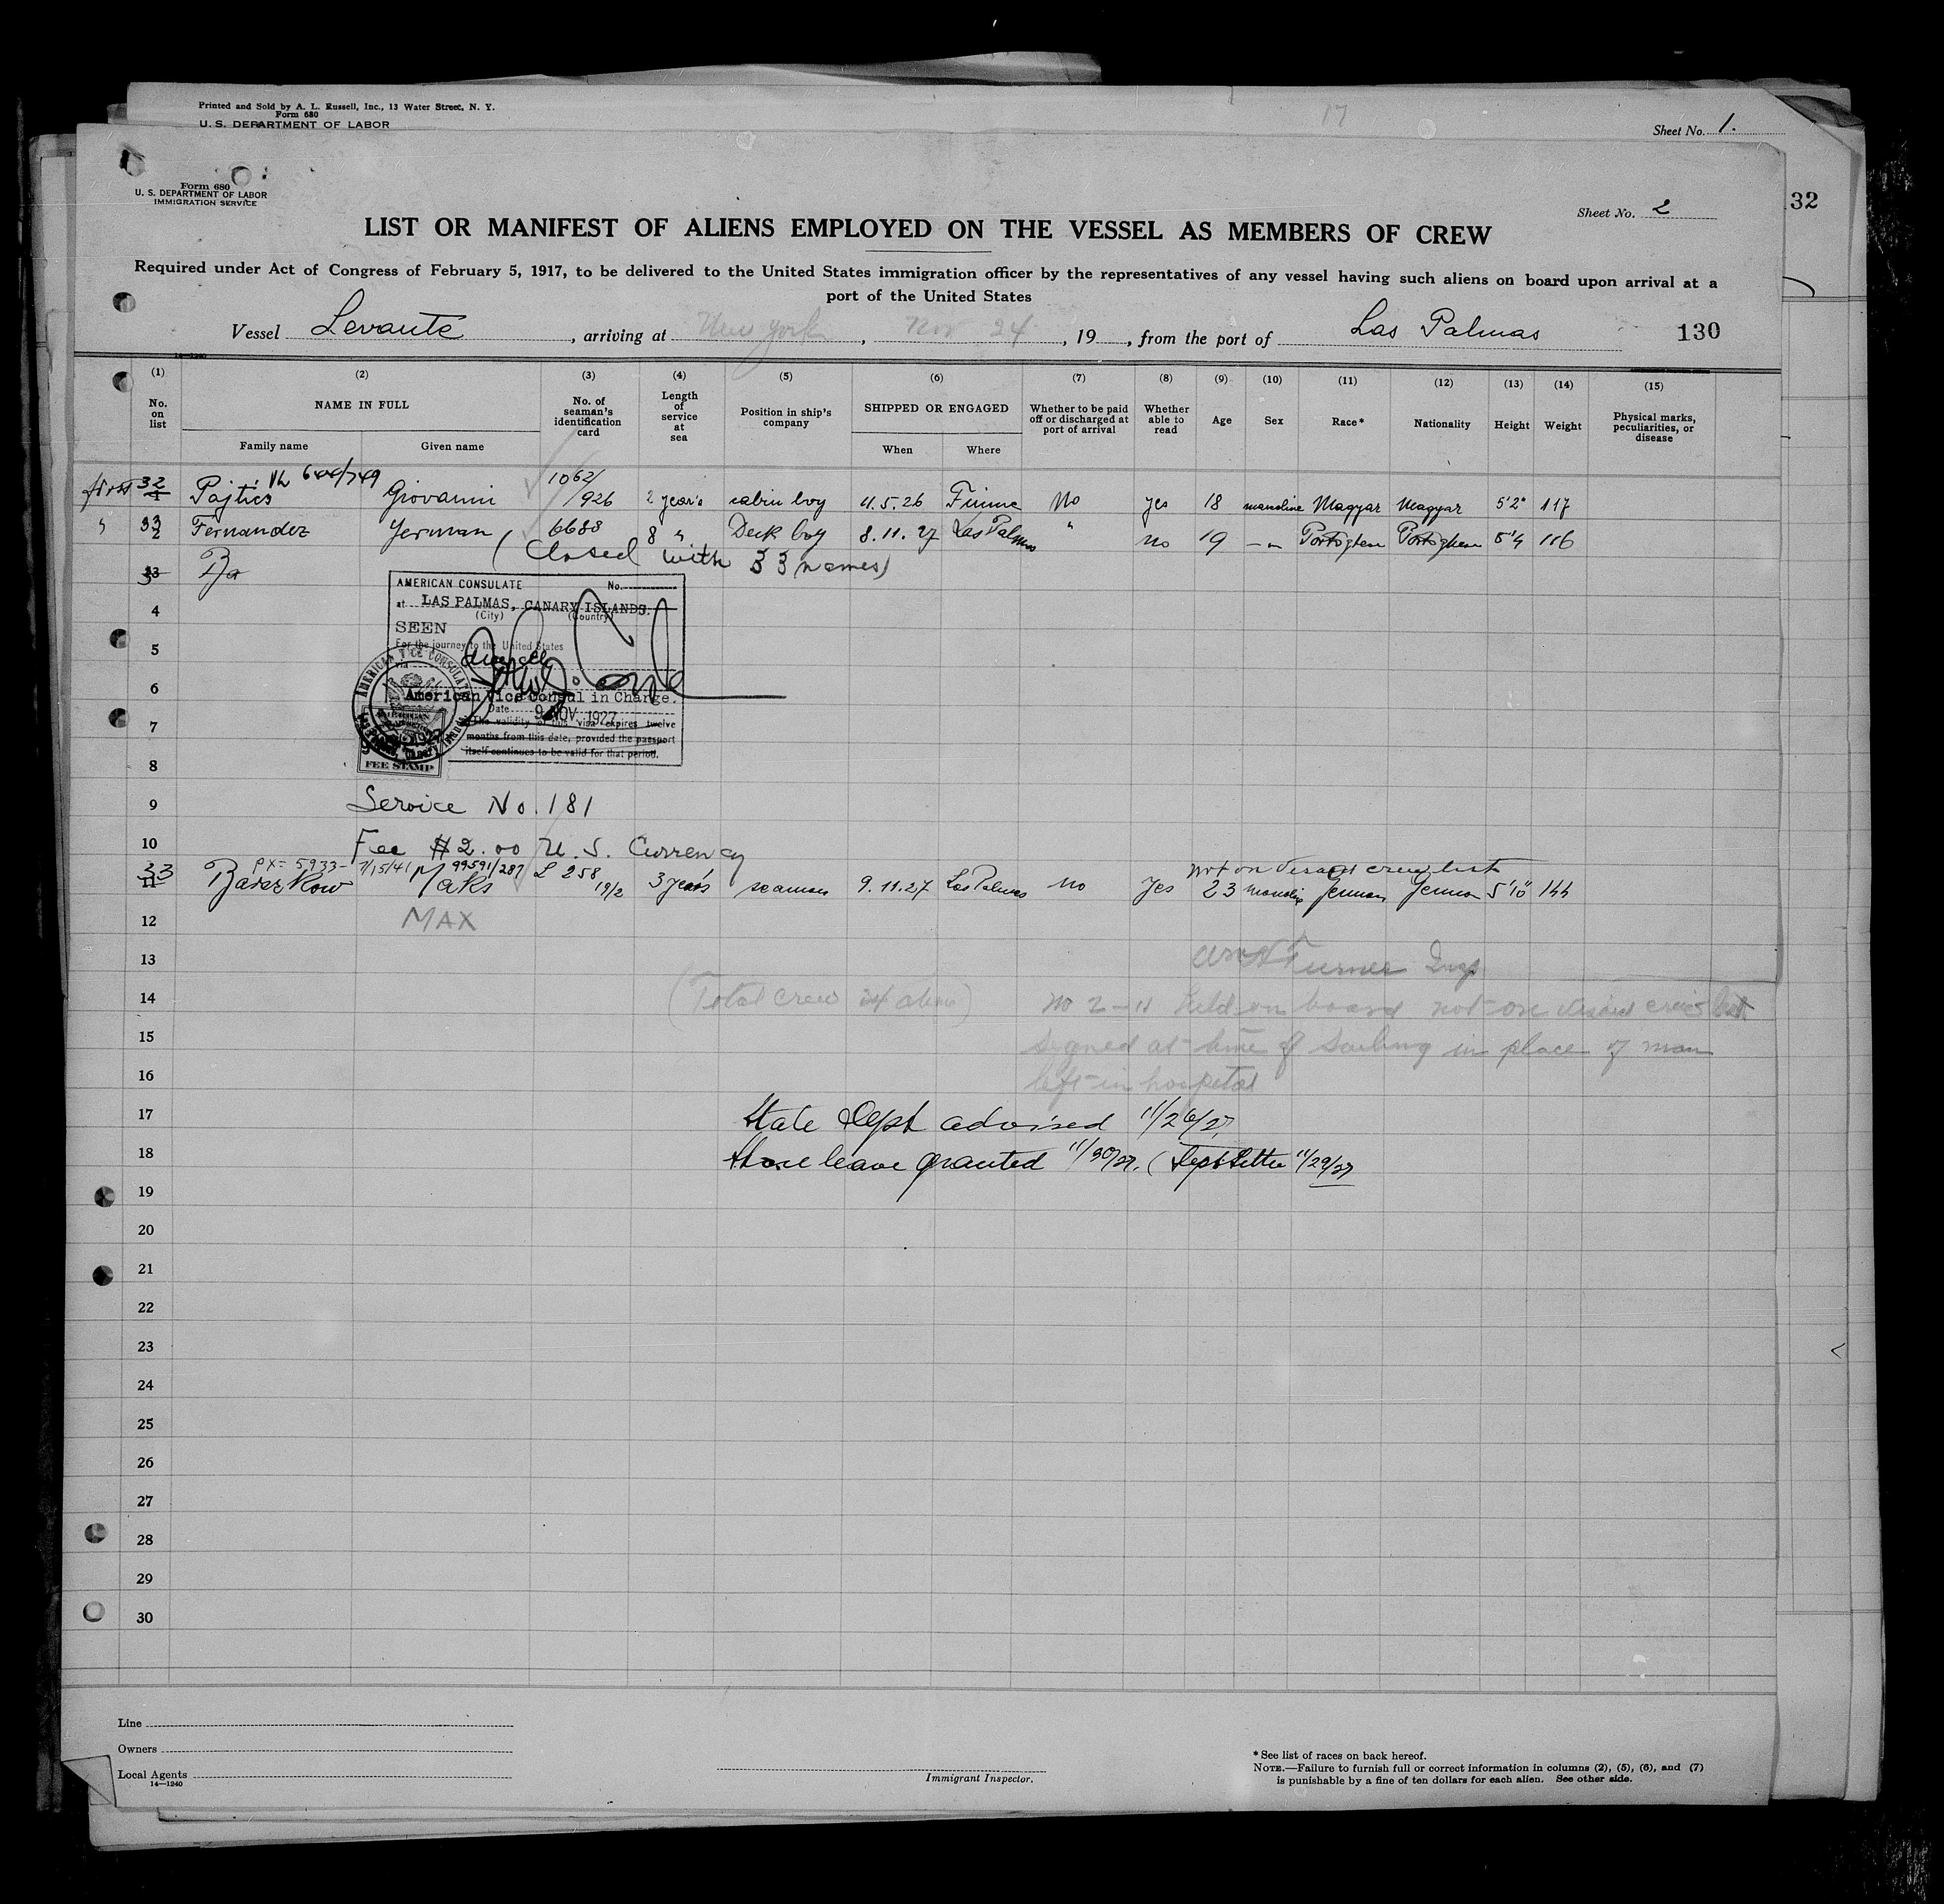 Printed and Sold by A. L. Russell, Inc., 13 Water Street, N. Y.
Form 680
U. S. DEPARTMENT OF LABOR
17
Sheet No. 1.
32
Form 680
U. S. DEPARTMENT OF LABOR
IMMIGRATION SERVICE
Sheet No. 2
LIST OR MANIFEST OF ALIENS EMPLOYED ON THE VESSEL AS MEMBERS OF CREW
Required under Act of Congress of February 5, 1917, to be delivered to the United States immigration officer by the representatives of any vessel having such aliens on board upon arrival at a
port of the United States
Vessel Levante, arriving at New York, Nov 24, 19, from the port of Las Palmas 130
14—1240
(1) (2) (3) (4) (5) (6) (7) (8) (9) (10) (11) (12) (13) (14) (15)
No. on list NAME IN FULL No. of seaman's identification card Length of service at sea Position in ship's company SHIPPED OR ENGAGED Whether to be paid off or discharged at port of arrival Whether able to read Age Sex Race* Nationality Height Weight Physical marks, peculiarities, or disease
Family name Given name When Where
first 32 1 Pajtics Giovanni 1062/926 2 year's cabin boy 11.5.26 Fiume No yes 18 masoline Magyar Magyar 5'2" 117
" 33 2 Fernandez German 6688 8 " Deck boy 8.11.27 Las Palmas " no 19 — " Portoghese Portoghese 5'4 116
(Closed with 33 names)
33 3 Ba
AMERICAN CONSULATE No.
at LAS PALMAS, CANARY ISLANDS.
(City) (Country)
4
SEEN
For the journey to the United States
5
via direct
6
American Vice Consul in Charge.
Date 9 NOV 1927
7
The validity of this visa expires twelve
months from this date, provided the passport
itself continues to be valid for that period.
AMERICAN VICE CONSULATE
FEE STAMP
8
9 Service No. 181
10 Fee $2.00 U. S. Currency
PX= 5933- 7/15/41 99591/287 not on visaed crew list
33 11 Baserkow Maks L 258 19/2 3 years seaman 9.11.27 Las Palmas no yes 23 German German 5'10" 144
12 MAX
13 Turner Insp
14 (Total crew 34 aliens) No 2-11 held on board not on visaed crew list
15 signed at time of sailing in place of man
16 left in hospital
17 State Dept advised 11/26/27
18 Shore leave granted 11/30/27. (Dept Letter 11/29/27
19
20
21
22
23
24
25
26
27
28
29
30
Line
Owners
Local Agents
14—1240
Immigrant Inspector.
* See list of races on back hereof.
NOTE.—Failure to furnish full or correct information in columns (2), (5), (6), and (7)
is punishable by a fine of ten dollars for each alien. See other side.